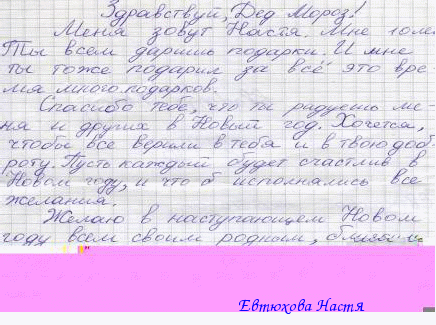 Здравствуй, Дед Мороз!
Меня зовут Настя. Мне 10 ле
Ты всем даришь подарки. И мне
ты тоже подарил за всё это вре
мя много подарков.
Спасибо тебе, что ты радуешь ме-
ня и других в Новый год. Хочется,
чтобы все верили в тебя и в твою доб-
роту. Пусть каждый будет счастлив в
Новом году, и что б исполнялись все
желания.
Желаю в наступающем Новом
году всем своим родным,
Евтюхова Настя